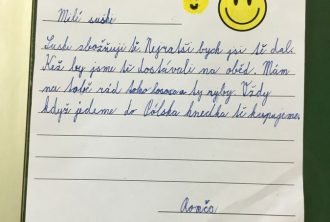 Milí suši
Suši zbožňuji tě. Nejradši bych jsi tě dali.
Kéž by jsme tě dostávali na oběd. Mám
na tobě rád toho lososa a ty ryby. Vždy
když jedeme do Pólska hnedka tě kupujeme.
Romčo